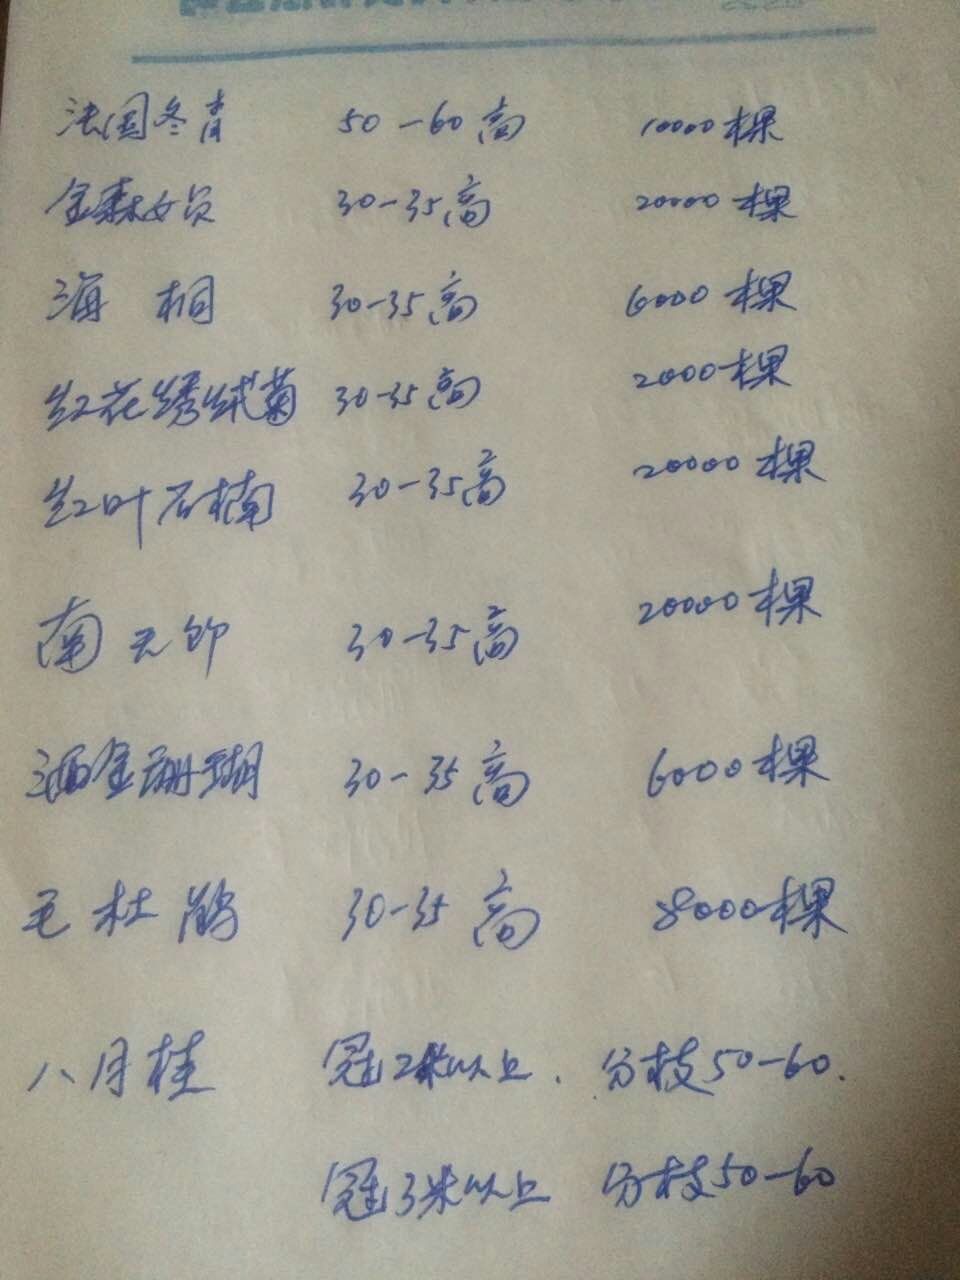 法国冬青 50-60高 10000棵
金森女贞 30-35高 20000棵
海桐 30-35高 6000棵
红花绣绒菊 30-35高 2000棵
红叶石楠 30-35高 20000棵
南天竹 30-35高 20000棵
洒金珊瑚 30-35高 6000棵
毛杜鹃 30-35高 8000棵
八月桂 冠2米以上. 分枝50-60.
冠3米以上 分枝50-60